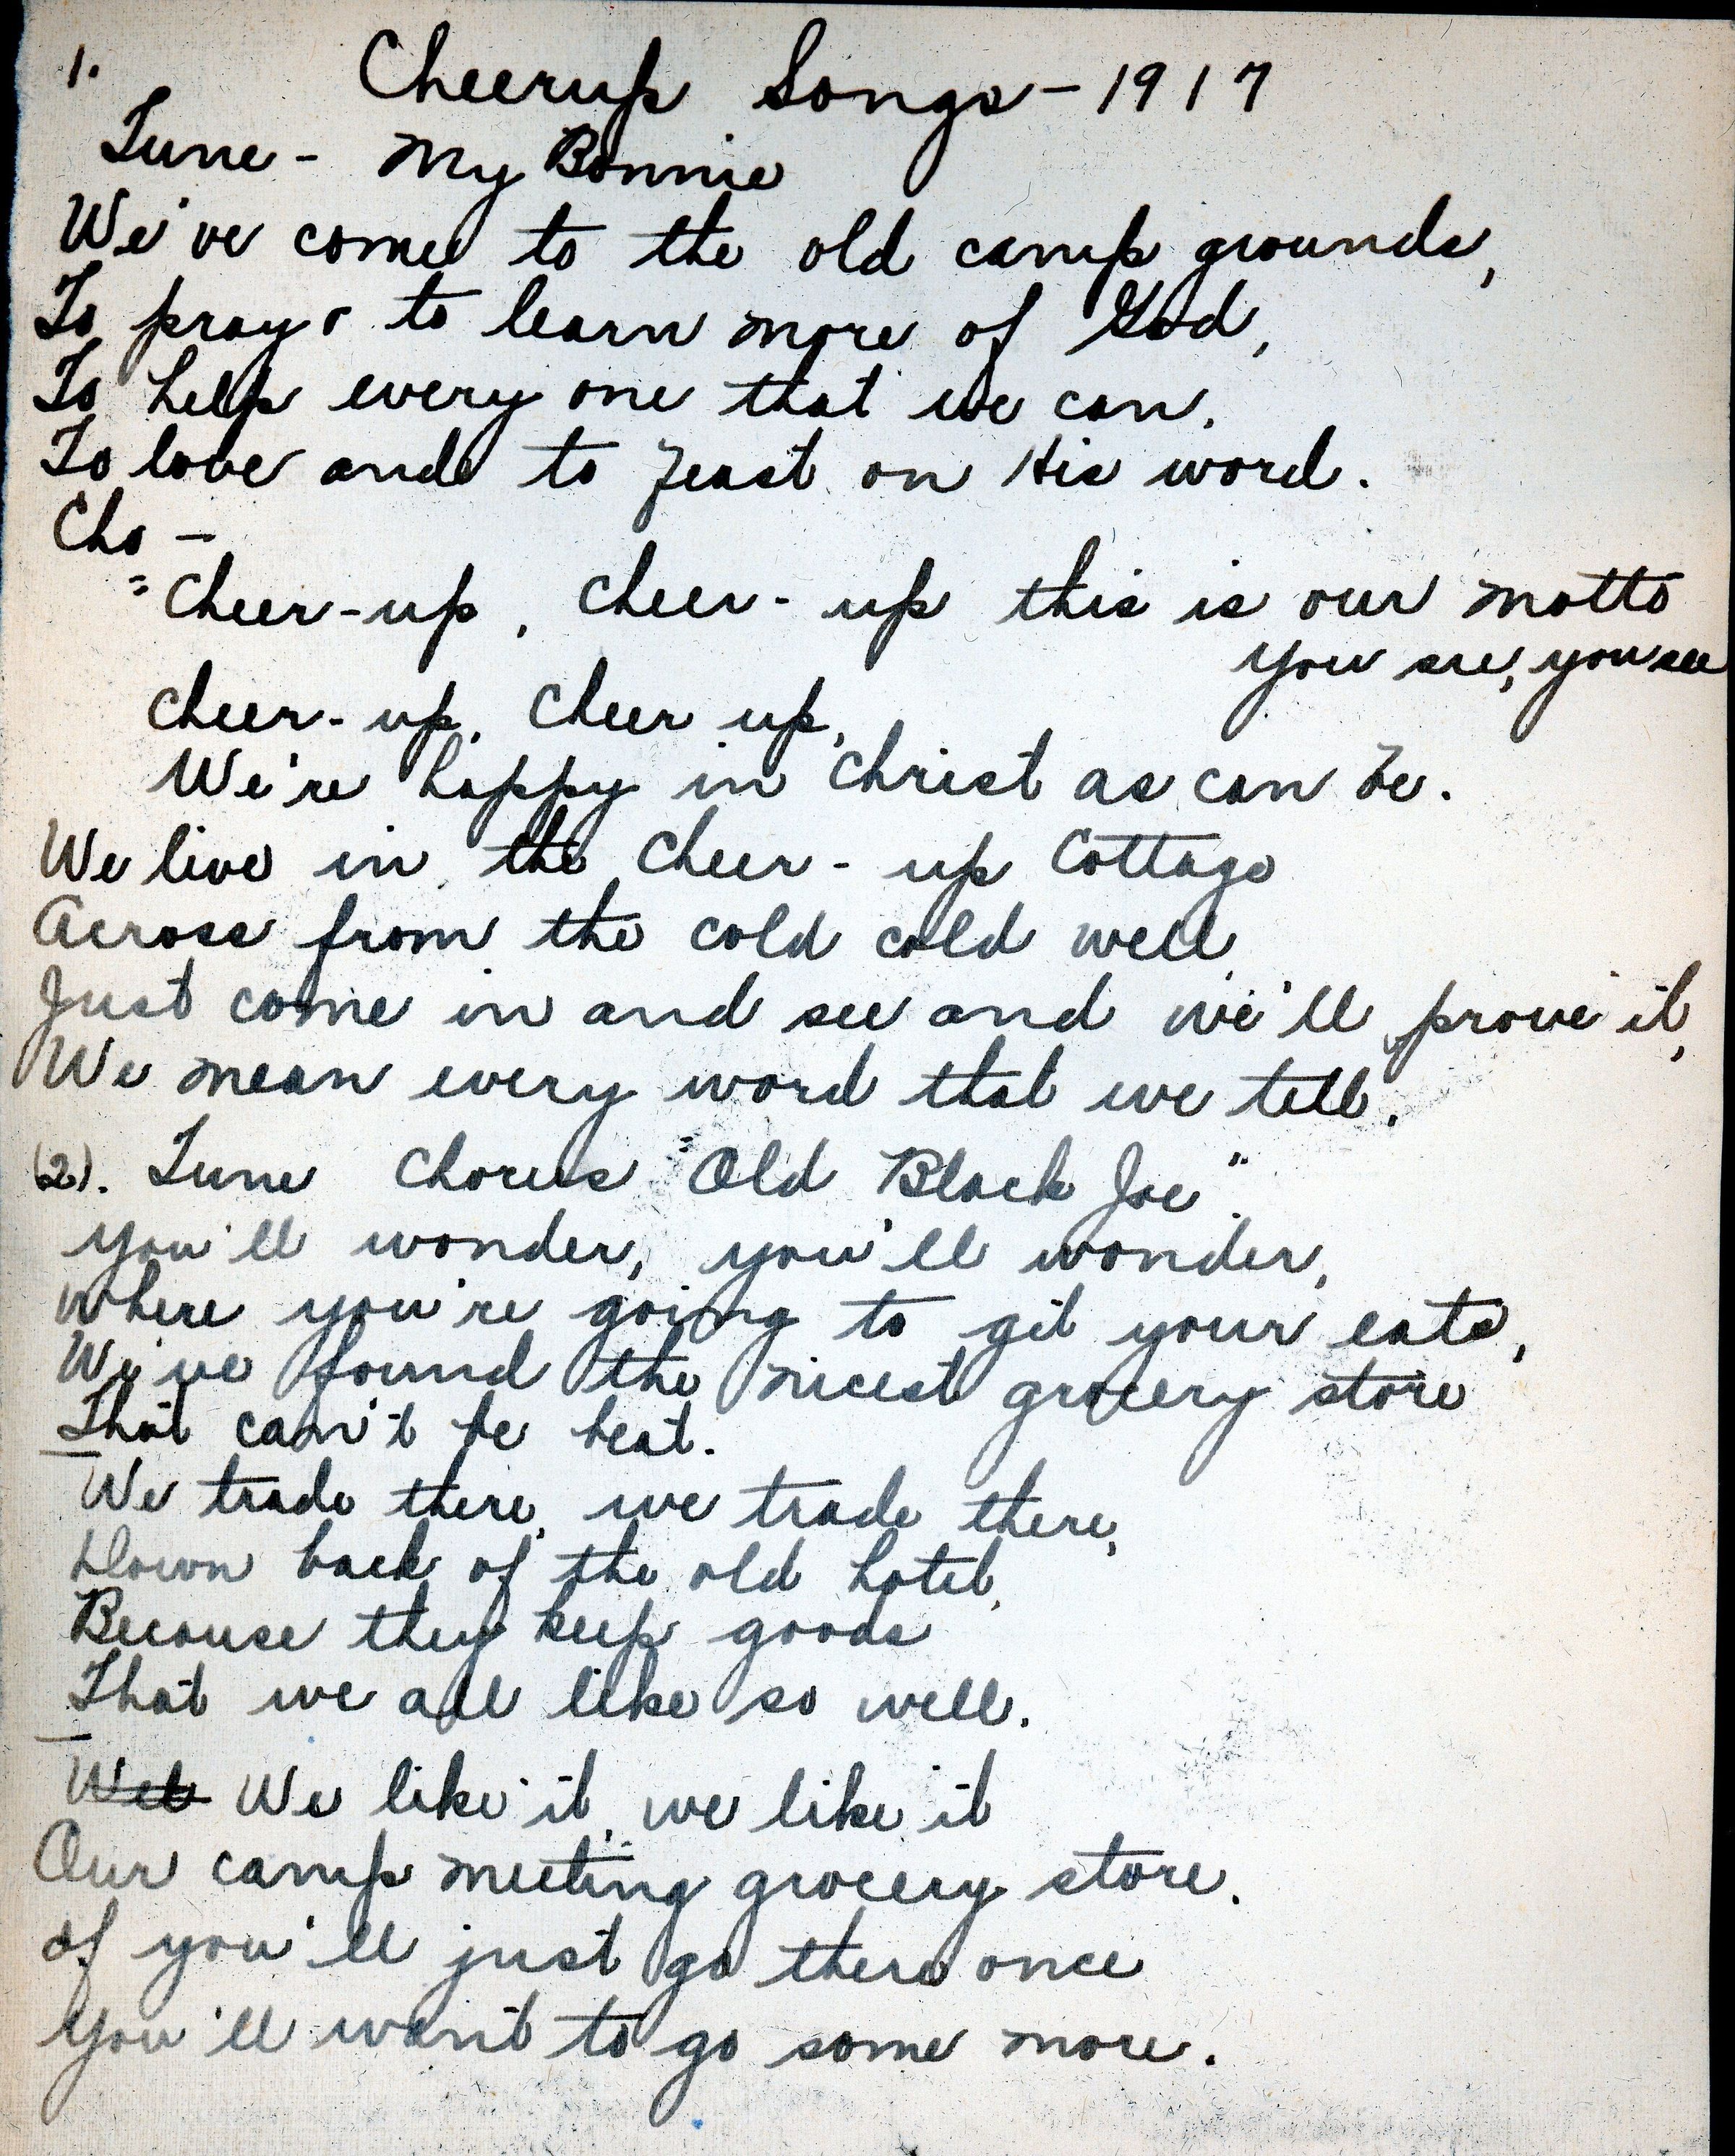 1. Cheerup Songs - 1917
Tune - My Bonnie
We've come to the old camp grounds,
To pray & to learn more of God,
To help every one that we can,
To love and to feast on His word.
Cho -
"Cheer-up, cheer-up this is our motto
you see, you see
Cheer-up, Cheer up,
We're happy in Christ as can be.
We live in the Cheer-up Cottage
Across from the cold cold well
Just come in and see and we'll prove it,
We mean every word that we tell.
(2). Tune Chorus "Old Black Joe".
You'll wonder, you'll wonder,
Where you're going to git your eats,
We've found the nicest grocery store
That can't be beat.
We trade there, we trade there,
Down back of the old hotel,
Because they keep goods
That we all like so well.
Wel We like it, we like it
Our camp meeting grocery store.
If you'll just go there once
You'll want to go some more.